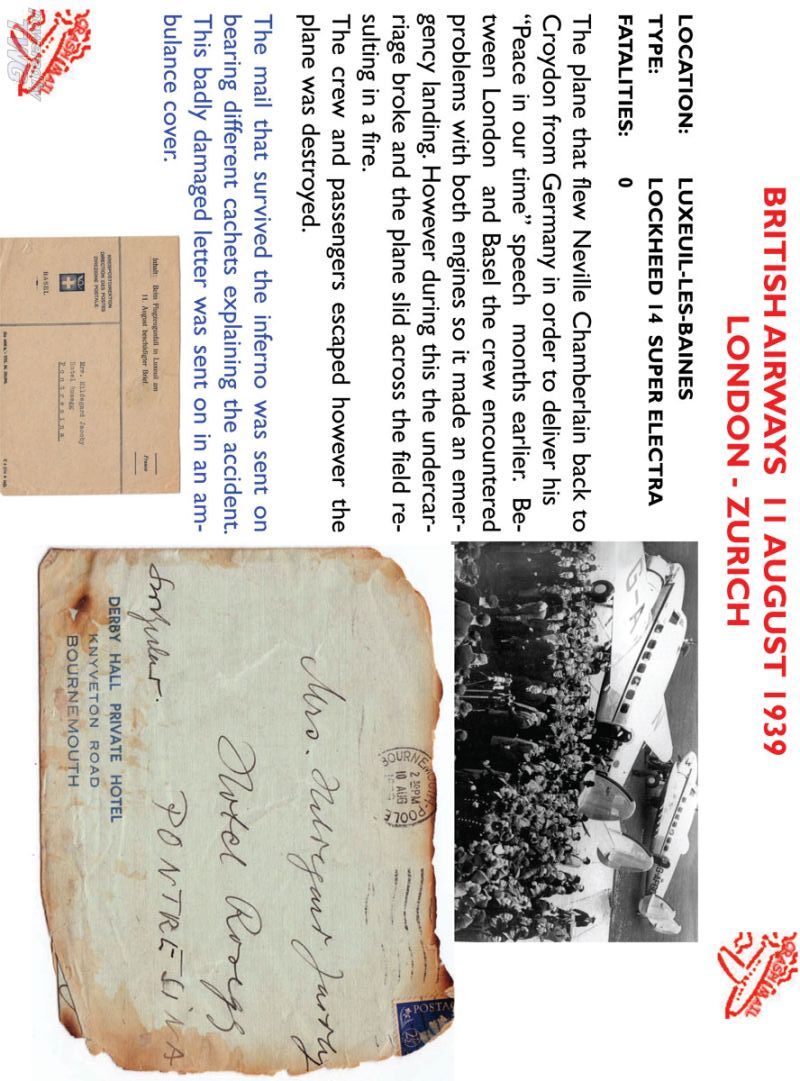 BRITISH AIRWAYS 11 AUGUST 1939
LONDON - ZURICH
LOCATION: LUXEUIL-LES-BAINES
TYPE: LOCKHEED 14 SUPER ELECTRA
FATALITIES: 0
The plane that flew Neville Chamberlain back to
Croydon from Germany in order to deliver his
“Peace in our time” speech months earlier. Be-
tween London and Basel the crew encountered
problems with both engines so it made an emer-
gency landing. However during this the undercar-
riage broke and the plane slid across the field re-
sulting in a fire.
The crew and passengers escaped however the
plane was destroyed.
The mail that survived the inferno was sent on
bearing different cachets explaining the accident.
This badly damaged letter was sent on in an am-
bulance cover.
G-A
CRASH MAIL
CRASH MAIL
KREISPOSTDIREKTION
DIRECTION DES POSTES
DIREZIONE POSTALE
BASEL
Inhalt: Beim Flugzeugunfall in Luxeuil am
11 August beschädigter Brief.
Mrs. Hildegard Jacoby
Hotel Rosegg
Pontresina
BOURNEMOUTH POOLE
2 30PM
10 AUG
POSTAG
Mrs. Hildegard Jacoby
Hotel Rosegg
PONTRESINA
DERBY HALL PRIVATE HOTEL
KNYVETON ROAD
BOURNEMOUTH